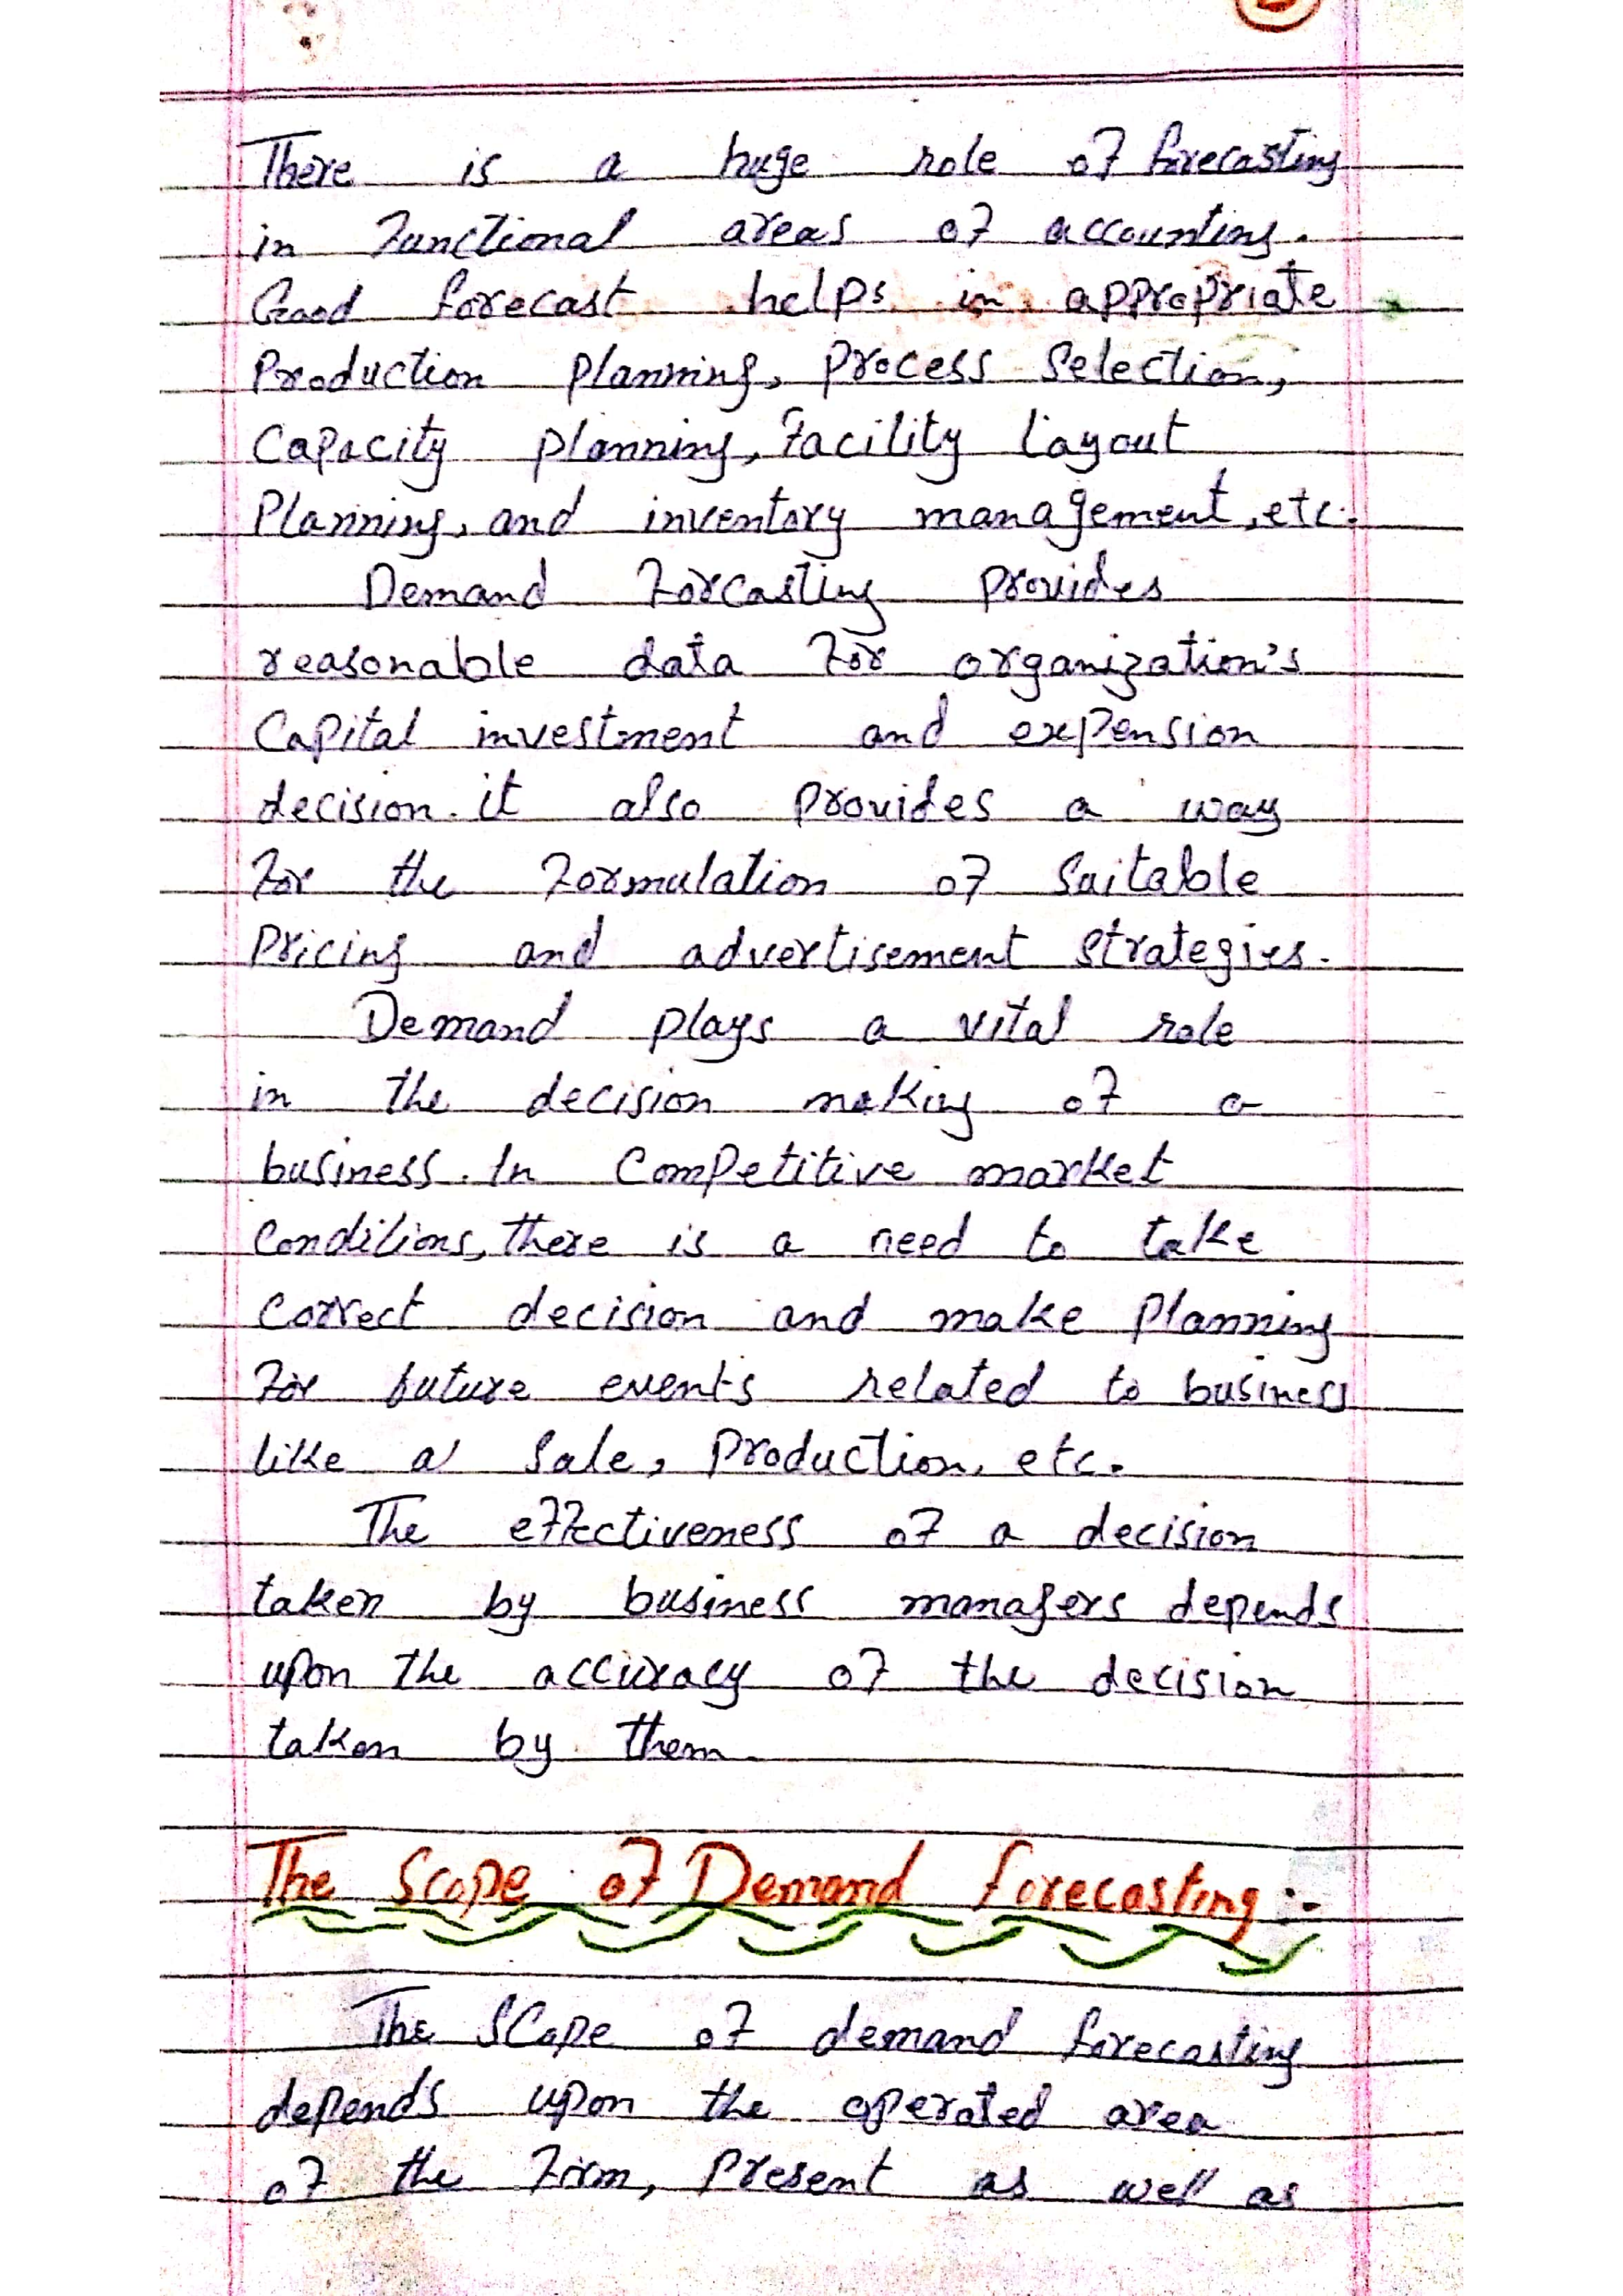 There is a huge role of forecasting
in functional areas of accounting.
Good forecast helps in appropriate
Production planning, process selection,
Capacity planning, facility layout
Planning, and inventory management, etc.
Demand forcasting provides
reasonable data for organization's
Capital investment and expension
decision. it also provides a way
for the formulation of suitable
pricing and advertisement strategies.
Demand plays a vital role
in the decision making of a
business. In Competitive market
Conditions, there is a need to take
Correct decision and make planning
for future events related to business
like a sale, production, etc.
The effectiveness of a decision
taken by business managers depends
upon the accuracy of the decision
taken by them.
The Scope of Demand forecasting :-
The Scope of demand forecasting
depends upon the operated area
of the firm, present as well as